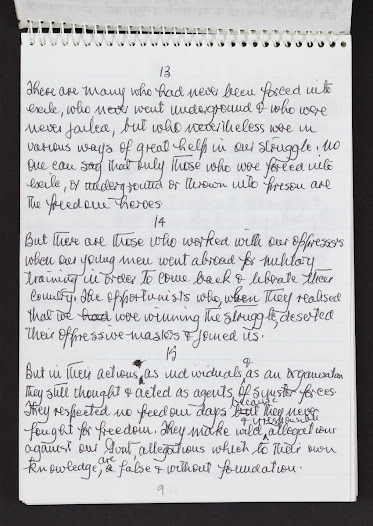 13
There are many who had never been forced into
exile, who never went underground & who were
never jailed, but who nevertheless were in
various ways of great help in our struggle. No
one can say that only those who were forced into
exile, or underground or thrown into prison are
the freedom heroes
14
But there are those who worked with our oppressors
when our young men went abroad for military
training in order to come back & liberate their
country. The opportunists who, when they realised
that we had were winning the struggle, deserted
their oppressive masters & joined us.
15
But in their actions, as individuals & as an organisation
they still thought & acted as agents of sinister forces.
They respected no freedom days but because they never
fought for freedom. They make wild & irresponsible allegations
against our Govt, allegations which to their own
knowledge, are a false & without foundation.
9